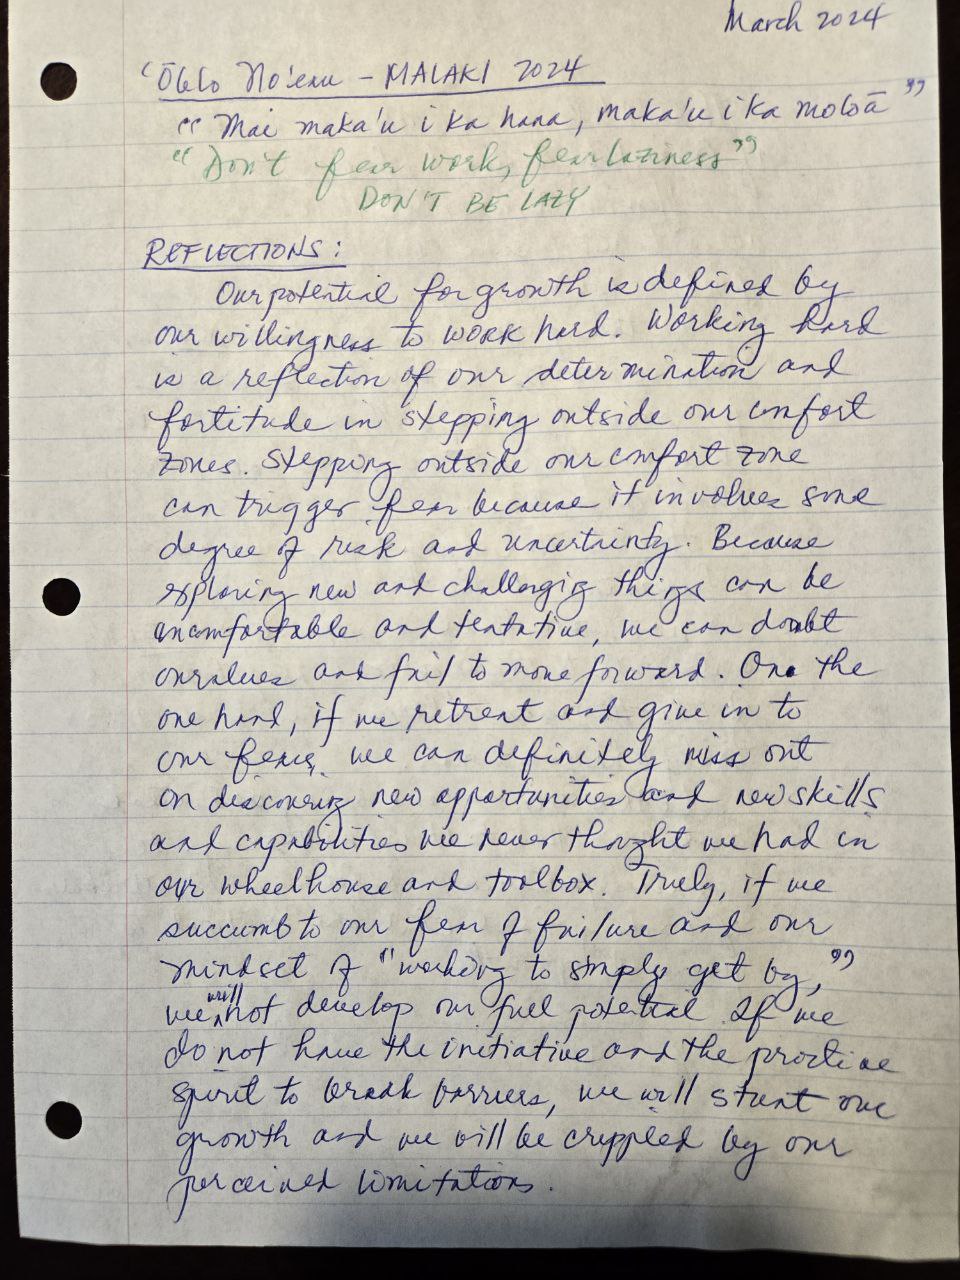 March 2024
'Ōlelo No'eau - MALAKI 2024
"Mai maka'u i ka hana, maka'u i ka moloā"
"Don't fear work, fear laziness"
DON'T BE LAZY
REFLECTIONS:
Our potential for growth is defined by
our willingness to work hard. Working hard
is a reflection of our determination and
fortitude in stepping outside our comfort
zones. Stepping outside our comfort zone
can trigger fear because it involves some
degree of risk and uncertainty. Because
exploring new and challenging things can be
uncomfortable and tentative, we can doubt
ourselves and fail to move forward. On the
one hand, if we retreat and give in to
our fears, we can definitely miss out
on discovering new opportunities and new skills
and capabilities we never thought we had in
our wheelhouse and toolbox. Truly, if we
succumb to our fear of failure and our
mindset of "working to simply get by,"
we will not develop our full potential. If we
do not have the initiative and the proactive
spirit to break barriers, we will stunt our
growth and we will be crippled by our
perceived limitations.